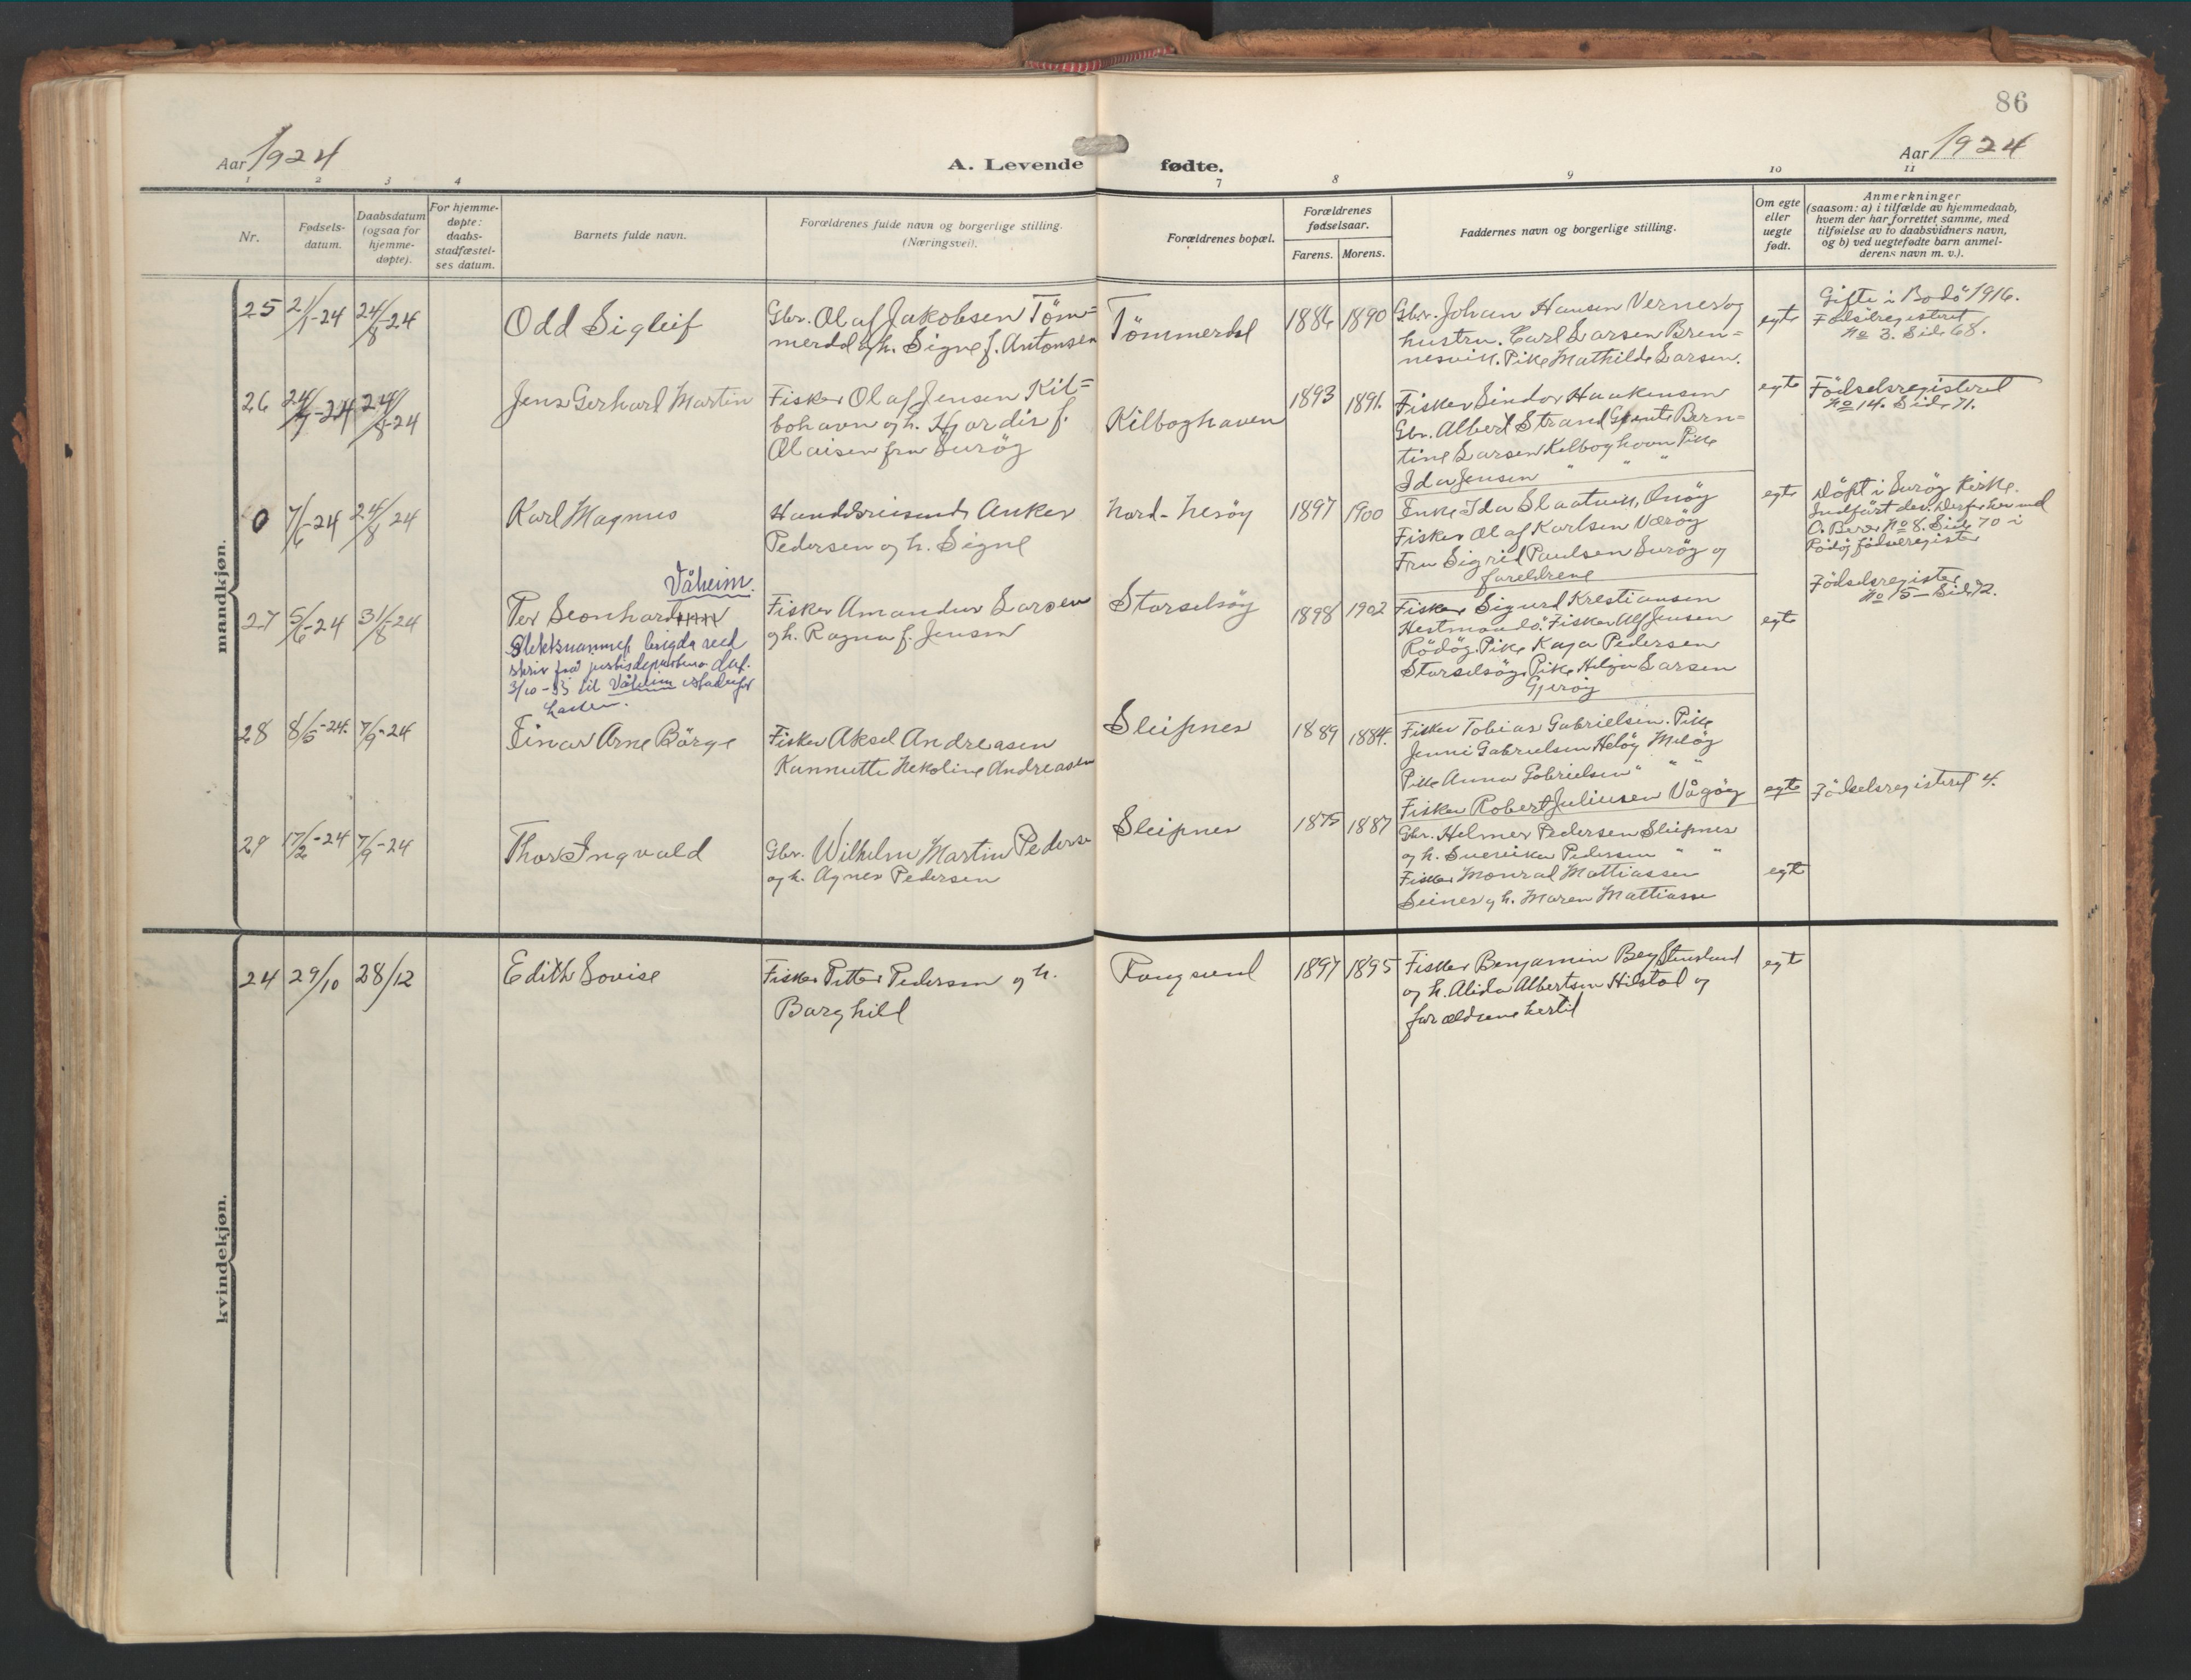 86
Aar 1924
A. Levende fødte.
Aar 1924
1 2 3 4 7 8 9 10 11
Nr.
Fødsels-
datum.
Daabsdatum
(ogsaa for
hjemme-
døpte).
For hjemme-
døpte:
daabs-
stadfæstel-
ses datum.
Barnets fulde navn.
Forældrenes fulde navn og borgerlige stilling.
(Næringsvei).
Forældrenes bopæl.
Forældrenes
fødselsaar.
Farens. Morens.
Faddernes navn og borgerlige stilling.
Om egte
eller
uegte
født.
Anmerkninger
(saasom: a) i tilfælde av hjemmedaab,
hvem der har forrettet samme, med
tilføielse av to daabsvidners navn,
og b) ved uegtefødte barn anmel-
derens navn m. v.).
mandkjøn.
25 21/1-24 24/8-24
Odd Sigleif
Gbr. Olaf Jakobsen Töm=
merdal og h. Signe f. Antonsen
Tömmerdal
1886 1890
Gbr. Johan Hansen Vernes og
hustru. Carl Larsen Bren=
nesvik. Pike Mathilde Larsen.
egte
Gifte i Bodö 1916.
Födselregisteret
No 3. Side 68.
26 24/7-24 24/8-24
Jens Gerhard Martin
Fisker Olaf Jensen Kil=
bohavn og h. Hjordis f.
Olaisen fra Luröy
Kilboghaven
1893 1891.
Fisker Sindor Haakensen
Gbr. Albert Strand Gjente Bern=
tine Larsen Kilboghavn Pike
Ida Jensen " " "
egte
Födselsregisteret
No 14. Side 71.
0 7/6-24 24/8 24
Karl Magnus
Handelsreisende Anker
Pedersen og h. Signe
Nord-Nesöy
1897 1900
Enke Ida Slaatvik, Onöy
Fisker Olaf Karlsen Væröy
Fru Sigrid Paulsen Luröy og
foreldrene
egte
Döpt i Luröy Kirke.
Indfört der.
No 8. Side 70 i
Rödöy födselregister
27 5/6-24 31/8-24
Per Leonhard
Våheim.
Slektsnamnet brigda ved
skriv frå justisdepartem. dat.
3/10-35 til Våheim istadenfor
Larsen.
Fisker Amandus Larsen
og h. Ragna f. Jensen
Storselsöy
1898 1902
Fisker Sigurd Krestiansen
Hestmandö. Fisker Alf Jensen
Rödöy. Pike Kaja Pedersen
Storselsöy. Pike Helga Larsen
Gjeröy
egte
Födselsregister
No 15 – Side 72.
28 8/5-24. 7/9-24
Einar Arne Börge
Fisker Aksel Andreasen
Kannutte Nekoline Andreasen
Sleipnes
1889 1884.
Fisker Tobias Gabrielsen. Pike
Jenni Gabrielsen Helöy Melöy
Pike Anna Gabrielsen " " "
Fisker Robert Juliusen Vågöy
egte
Födselsregisteret 4.
29 17/2-24 7/9-24
Thor Ingvald
Gbr. Wilhelm Martin Pederse
og h. Agnes Pedersen
Sleipnes
1875 1887
Gbr. Helmer Pedersen Sleipnes
og h. Pedersen " "
Fisker Monrad Mattiassen
Seines og h. Maren Mattiasse
egte
kvindekjøn.
24 29/10 28/12
Edith Lovise
Fisker Petter Pedersen og h.
Borghild
Rangsund
1897 1895
Fisker Benjamin Berg Stensland
og h. Alida Albertsen Hilstad og
forældrene hertil
egte